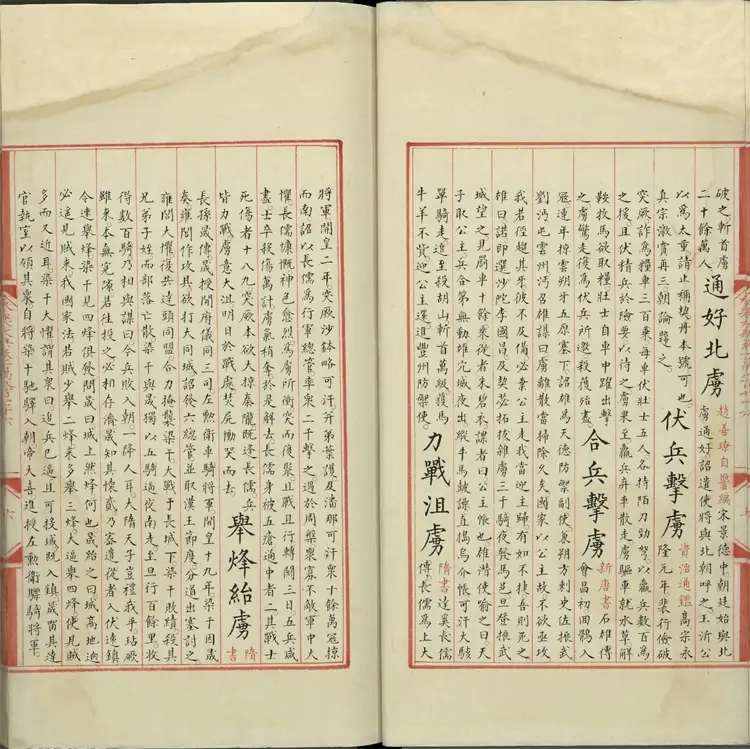 破之斬首虜
二十餘萬人
通好北虜
趙善璙自警編宋景德中朝廷始與北
虜通好詔遣使將與北朝呼之王沂公
以爲太重請止稱契丹本號可也
真宗激賞再三朝論韙之
伏兵擊虜
資治通鑑高宗永
隆元年裴行儉破
突厥詐爲糧車三百乘每車伏壯士五人各持陌刀勁弩以羸兵數百爲
之後且伏精兵於險要以待之虜果至羸兵弃車散走虜驅車就水草解
鞍牧馬欲取糧壯士自車中躍出擊
之虜驚走復爲伏兵所邀殺獲殆盡
合兵擊虜
新唐書石雄傳
會昌初回鶻入
寇連年掠雲朔牙五原塞下詔雄爲天德防禦副使兼朔方刺史佐振武
劉沔屯雲州沔召雄謀曰虜離散當掃除久矣國家以公主故不欲亟攻
我若徑趨其牙彼不及備必棄公主走我當迎主歸有如不捷吾則死之
雄曰諾即選沙陀李國昌及契苾拓拔雜虜三千騎夜發馬邑旦登振武
城望之見罽車十餘乘從者朱碧衣諜者曰公主帳也雄潜使喻之曰天
子取公主兵合第無動雄穴城夜出縱牛馬鼓譟直擣烏介帳可汗大駭
單騎走追至殺胡山斬首萬級獲馬
牛羊不貲迎公主還進豐州防禦使
力戰沮虜
隋書達奚長儒
傳長儒爲上大
將軍開皇二年突厥沙鉢略可汗并弟葉護及潘那可汗衆十餘萬冦掠
而南詔以長儒爲行軍總管率衆二千擊之遇於周槃衆寡不敵軍中大
懼長儒慷慨神色愈烈爲虜所衝突而復聚且戰且行轉鬬三日五兵咸
盡士卒殺傷萬計虜氣稍奪於是解去長儒身被五瘡通中者二其戰士
死傷者十八九突厥本欲大掠秦隴既逢長儒兵
皆力戰虜意大沮明日於戰處焚屍慟哭而去
舉烽紿虜
隋
書
長孫晟傳晟授開府儀同三司左勲衛車騎將軍開皇十九年染干因晟
奏雍閭作攻具欲打大同城詔發六總管並取漢王節度分道出塞討之
雍閭大懼復共達頭同盟合力掩襲染干大戰于長城下染干敗績殺其
兄弟子姪而部落亡散染干與晟獨以五騎逼夜南走至旦行百餘里收
得數百騎乃相與謀曰今兵敗入朝一降人耳大隋天子豈禮我乎玷厥
雖來本無寃隙若往投之必相存濟晟知其懷貳乃密遣從者入伏遠鎮
令速舉烽染干見四烽俱發問晟曰城上然烽何也晟紿之曰城高地迥
必遥見賊來我國家法若賊少舉二烽來多舉三烽大逼舉四烽使見賊
多而又近耳染干大懼謂其衆曰追兵已逼且可投城既入鎮晟留其達
官執室以領其衆自將染干馳驛入朝帝大喜進授左勲衛驃騎將軍